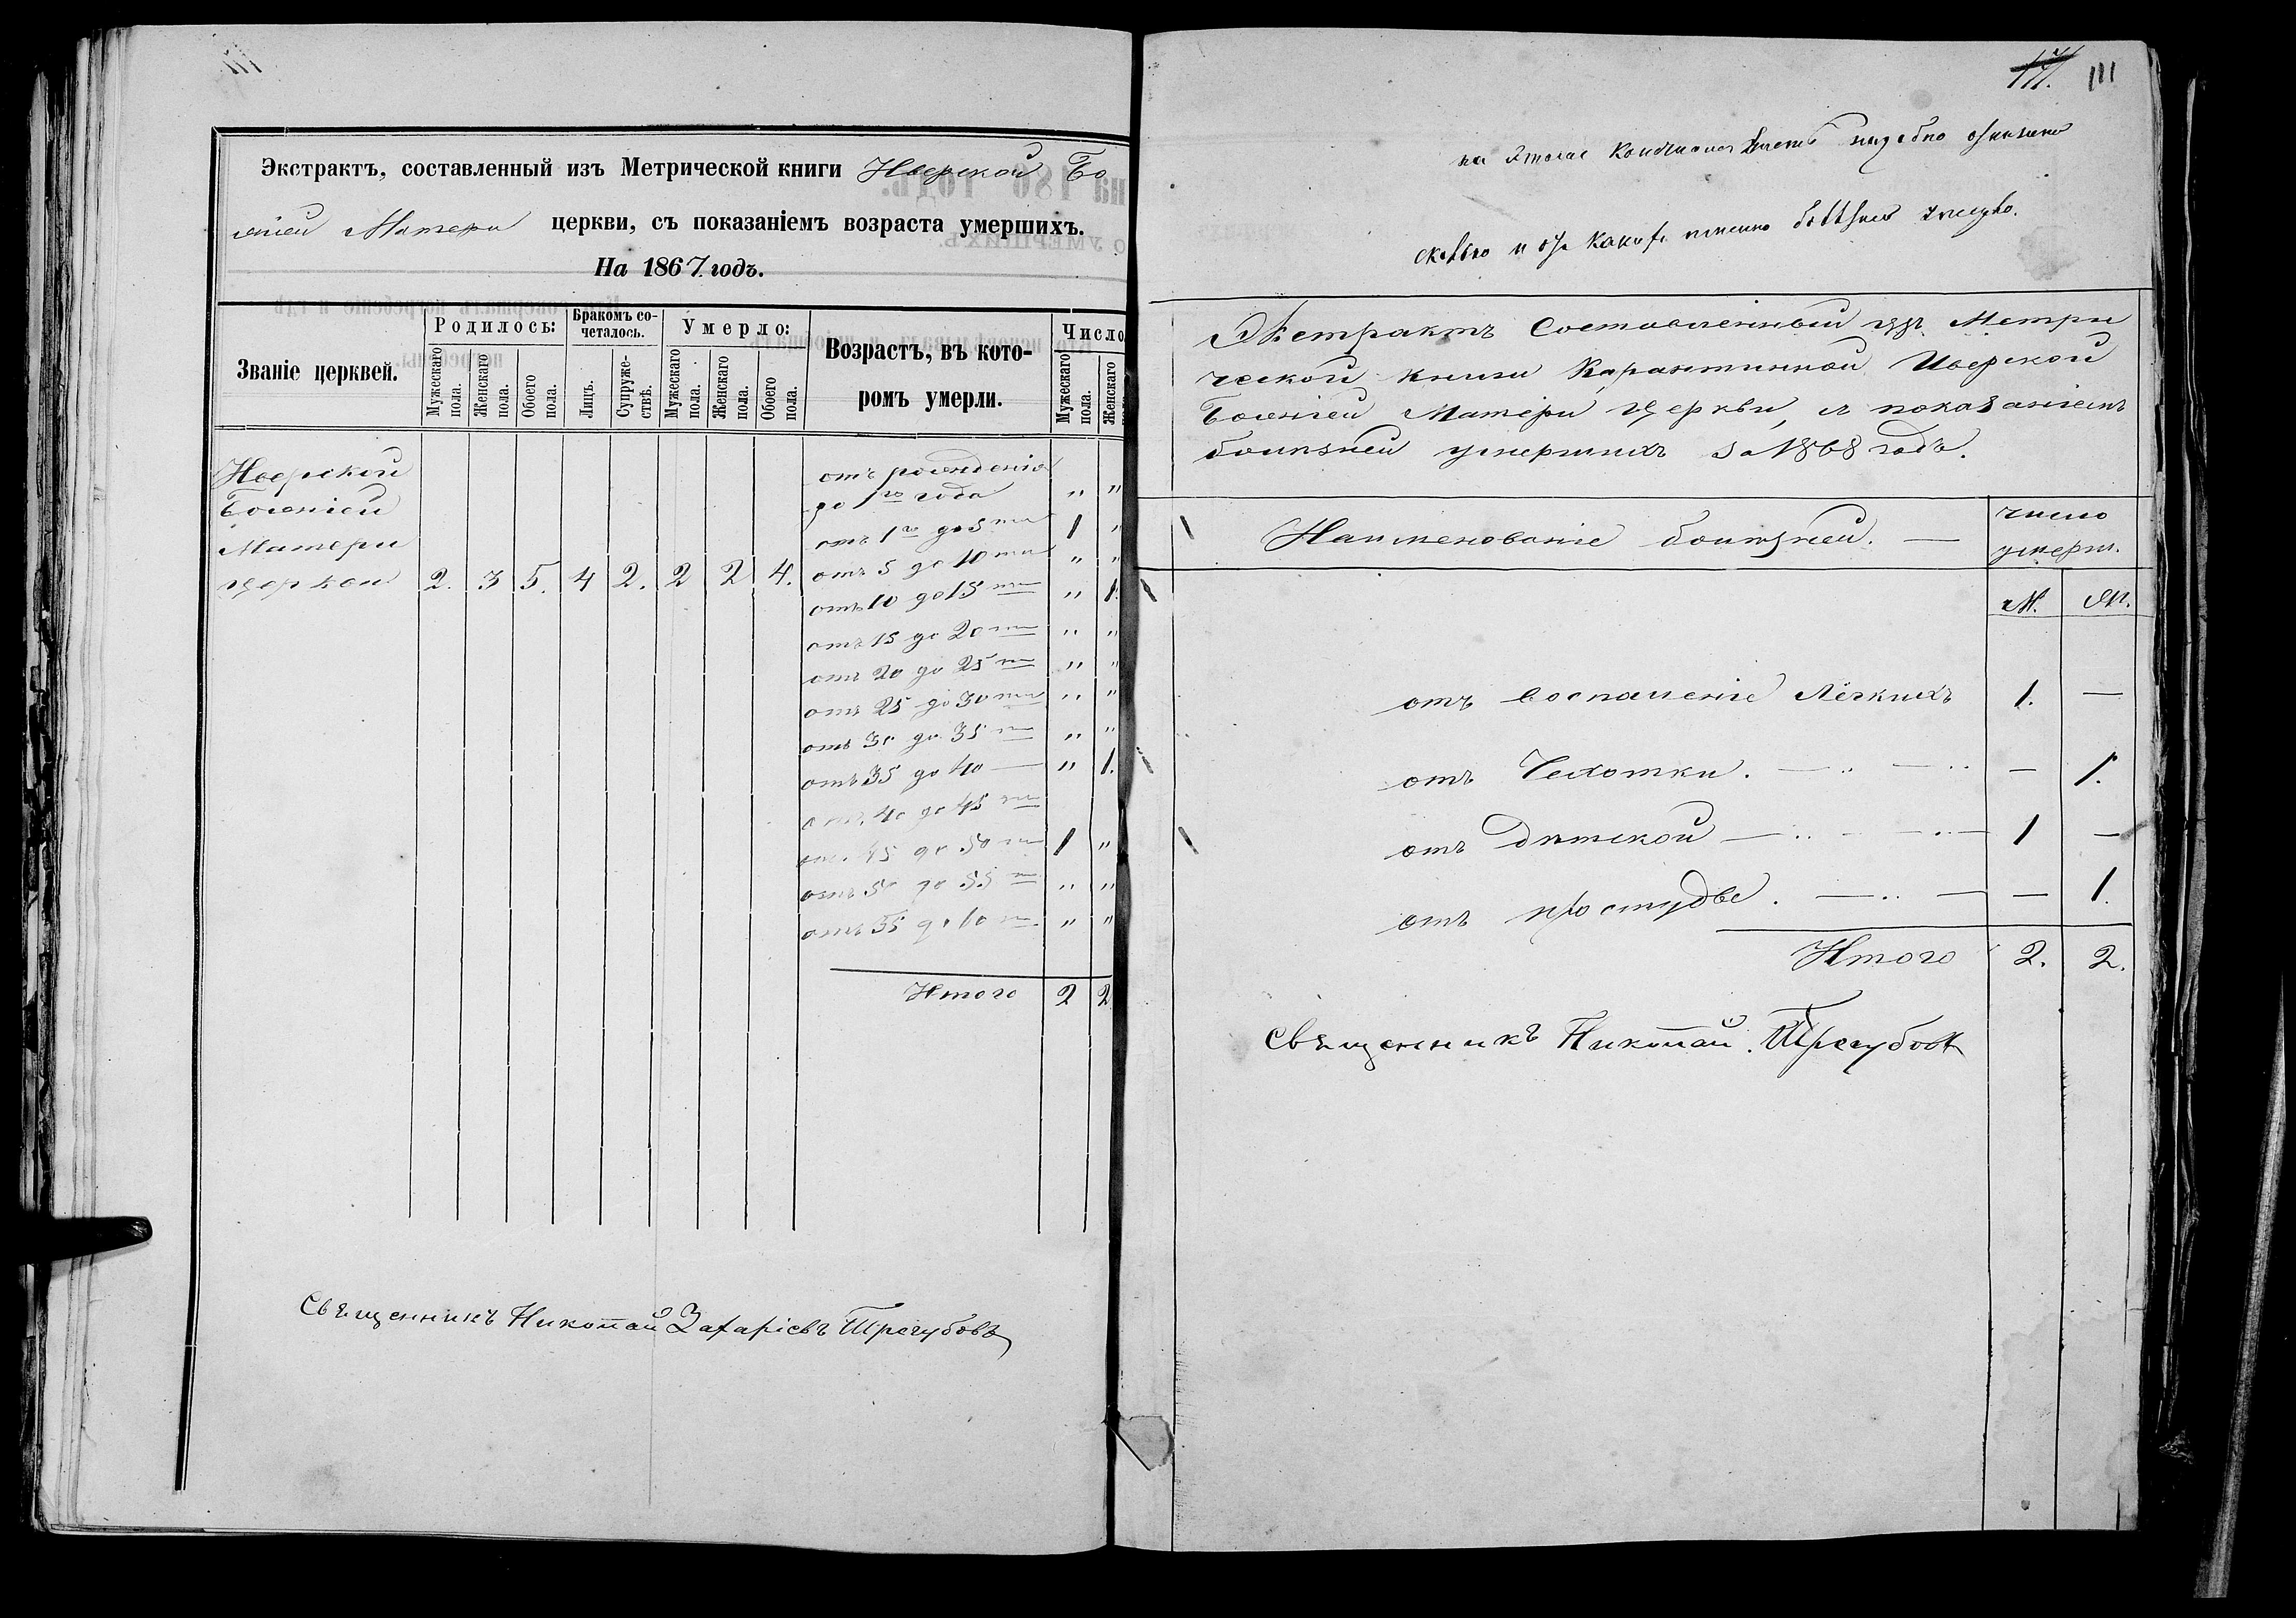 Экстрактъ, составленный изъ Метрической книги Иверской Бо
жіей Матери церкви, съ показаніемъ возраста умершихъ.
На 1867 годъ.
Званіе церквей.
Родилось:
Бракомъ со-
четалось.
Умерло:
Возрастъ, въ кото-
ромъ умерли.
Число
Мужескаго пола.
Женскаго пола.
Обоего пола.
Лицъ.
Супруже-
ствъ.
Мужескаго пола.
Женскаго пола.
Обоего пола.
Мужескаго пола.
Женскаго
Иверской
Божіей
Матери
церкви 2. 3 5. 4 2. 2 2 4.
отъ рожденія
до 1го года " "
отъ 1го до 5ти 1 "
отъ 5 до 10ти " "
отъ 10 до 15ти " 1.
отъ 15 до 20ти " "
отъ 20 до 25ти " "
отъ 25 до 30ти " "
отъ 30 до 35ти " "
отъ 35 до 40 — " 1.
отъ 40 до 45ти
отъ 45 до 50ти 1 "
отъ 50 до 55ти " "
отъ 55 до 60ти " "
Итого 2 2
Священникъ Николай Захаріевъ Трегубовъ
111
сколько и отъ какихъ именно болѣзней умерло.
Экстрактъ Составленный изъ Метри
ческой книги Карантинной Иверской
Божіей Матери Церкви, съ показаніемъ
болѣзней умершихъ за 1868 годъ.
Наименованіе болѣзней. —
число
умерш.
М. Ж.
отъ воспаленіе Лёгкихъ 1. —
отъ Чехотки. — 1.
отъ Дѣтской 1 —
отъ простудѣ. — 1.
Итого 2. 2.
Священникъ Николай Трегубовъ